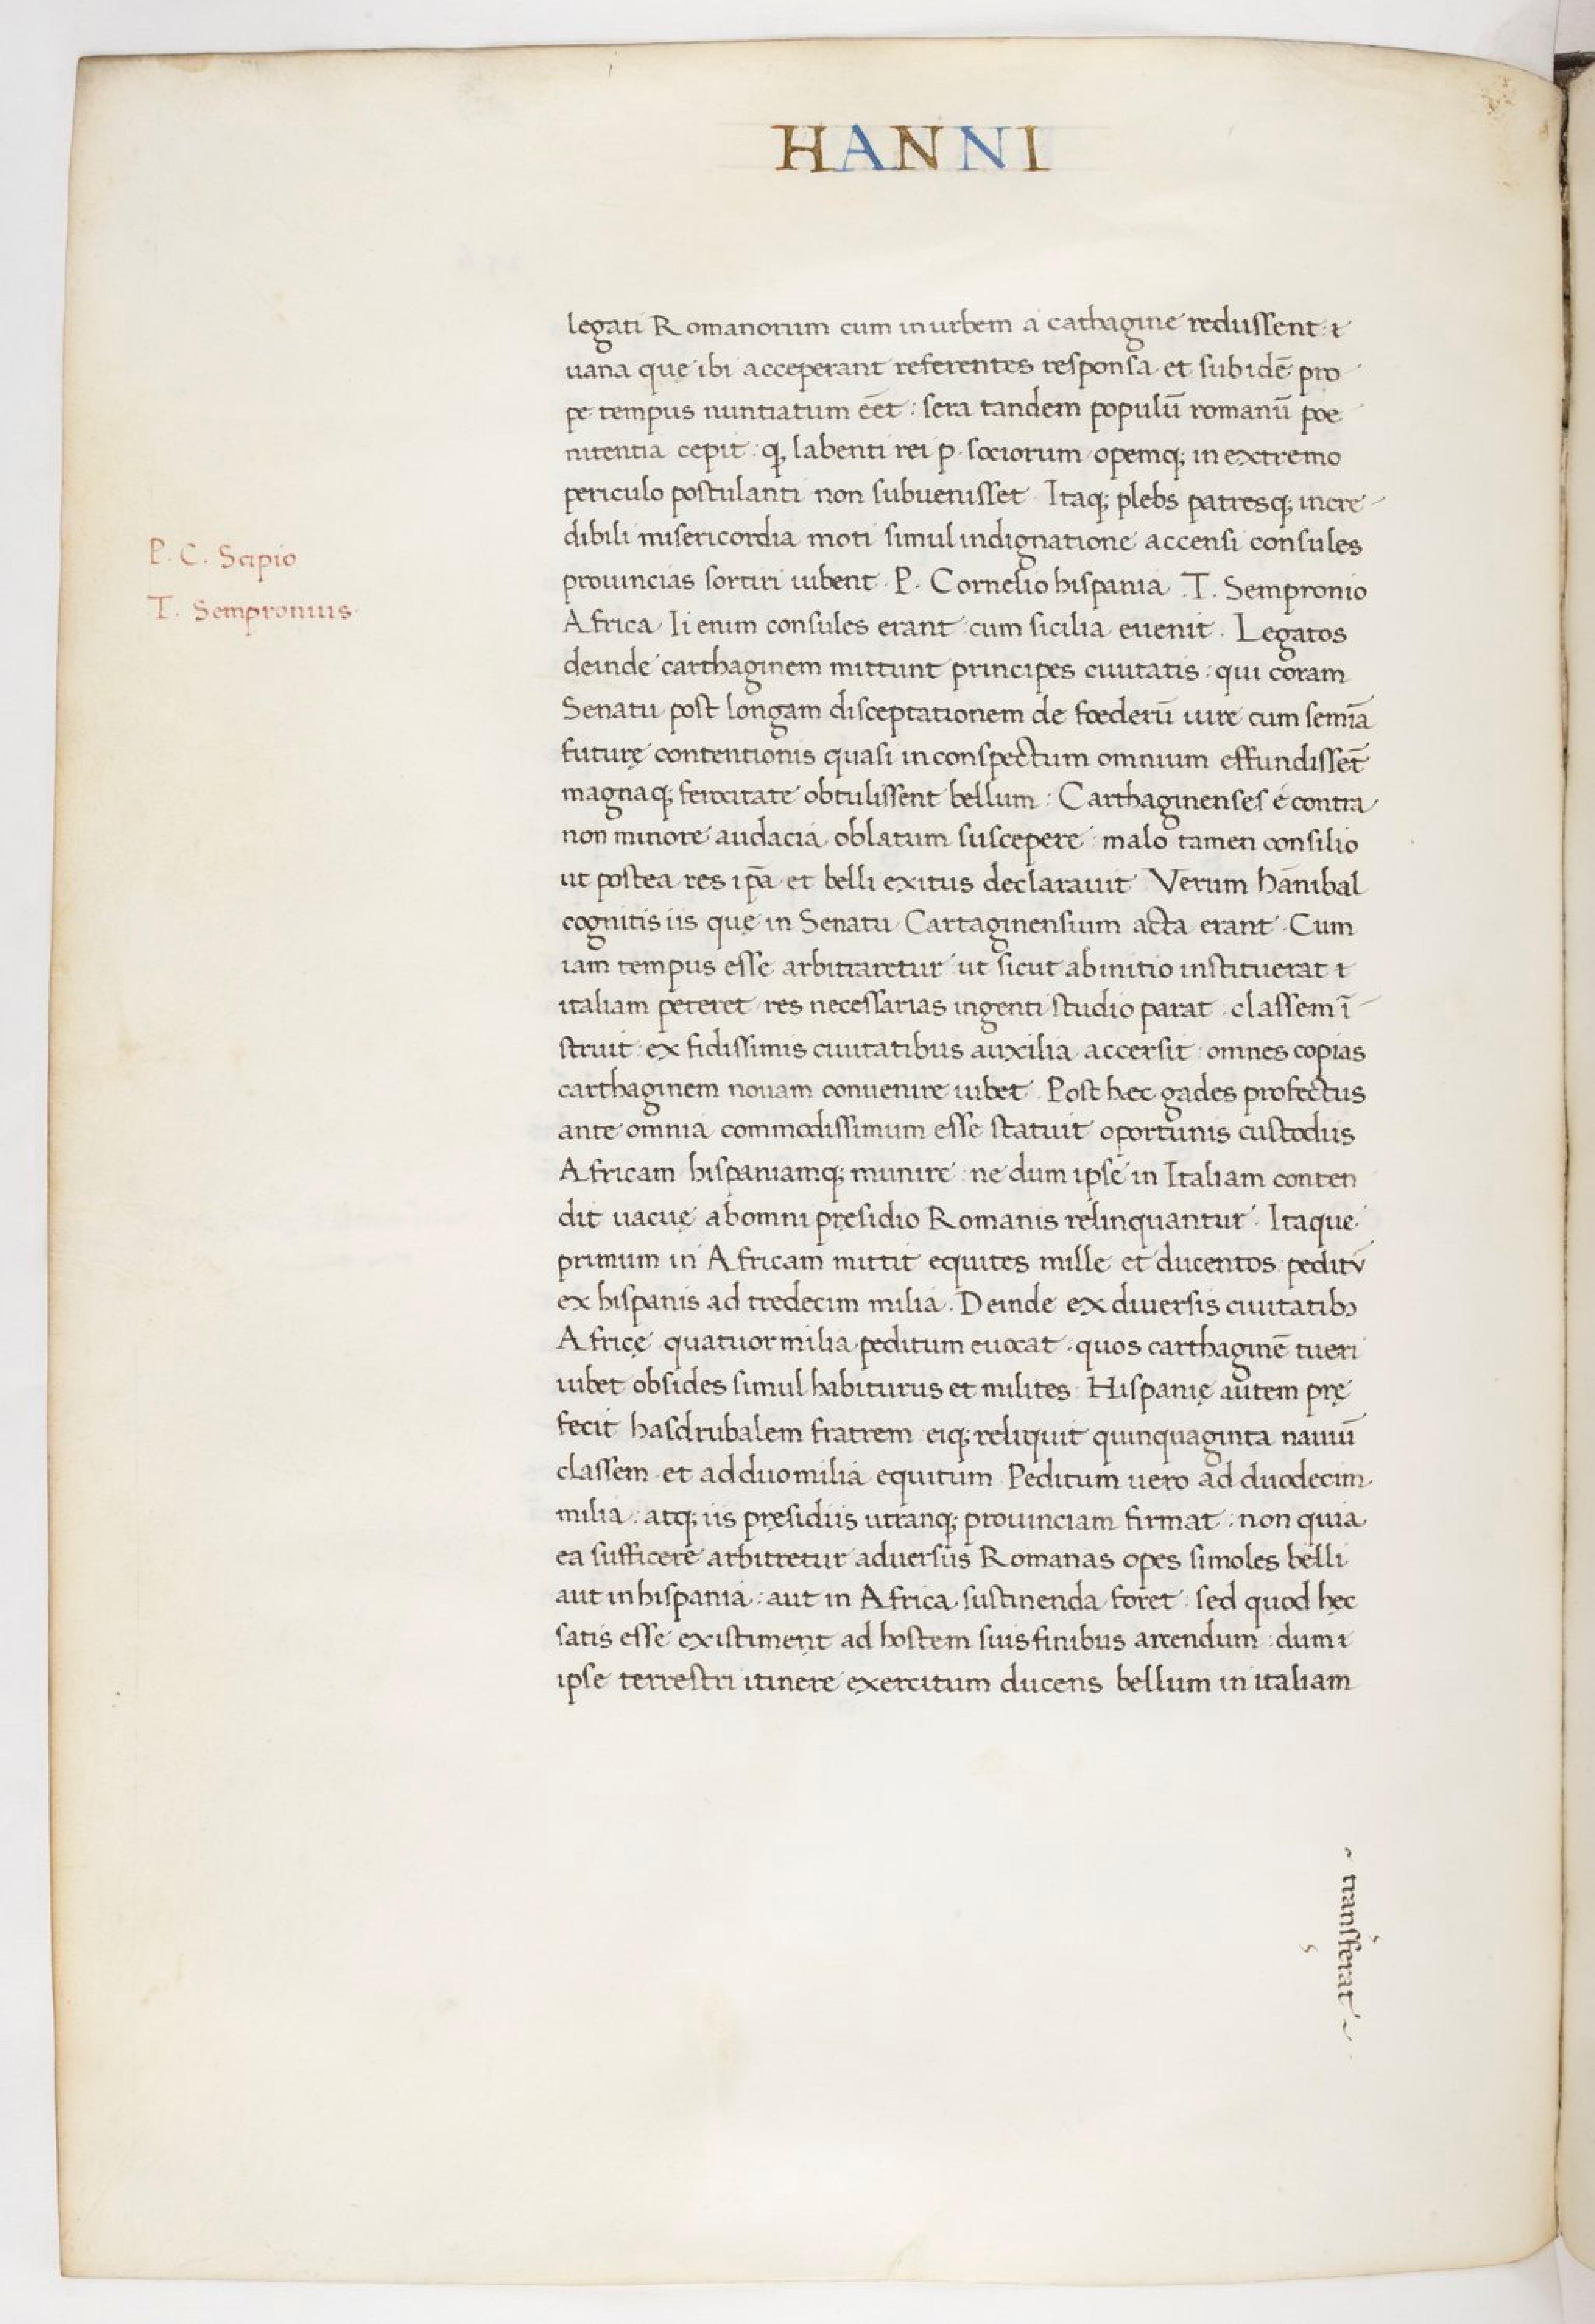 HANNI
legati Romanorum cum in urbem a cathagine redussent: ⁊
uana que ibi acceperant referentes responsa et sub idē pro
pe tempus nuntiatum eēt: sera tandem populū romanū poe
nitentia cepit: q, labenti rei p. sociorum opemq; in extremo
periculo postulanti non subuenisset. Itaq; plebs patresq; incre
dibili misericordia moti simul indignatione accensi consules
prouincias sortiri iubent. P. Cornelio hispania. T. Sempronio
Africa Ii enim consules erant cum sicilia euenit. Legatos
deinde carthaginem mittunt principes ciuitatis: qui coram
Senatu post longam disceptationem de fœderū iure cum semīa
futurę contentionis quasi in conspectum omnium effundissēt
magnaq; ferocitate obtulissent bellum: Carthaginenses e contra
non minore audacia oblatum suscepere: malo tamen consilio
ut postea res ip̄a et belli exitus declarauit Verum hānibal
cognitis iis quę in Senatu Cartaginensium acta erant. Cum
iam tempus esse arbitraretur ut sicut ab initio instituerat ⁊
italiam peteret res necessarias ingenti studio parat. classem ī
struit: ex fidissimis ciuitatibus auxilia accersit: omnes copias
carthaginem nouam conuenire iubet. Post hęc gades profectus
ante omnia commodissimum esse statuit oportunis custodiis
Africam hispaniamq; munire: ne dum ipse in Italiam conten
dit uacuę ab omni pręsidio Romanis relinquantur. Itaque
primum in Africam mittit equites mille et ducentos peditū
ex hispanis ad tredecim milia. Deinde ex diuersis ciuitatibꝫ
Africę quatuor milia peditum euocat: quos carthaginē tueri
iubet obsides simul habiturus et milites. Hispanię autem prę
fecit hasdrubalem fratrem eiq; reliquit quinquaginta nauiū
classem et ad duo milia equitum Peditum uero ad duodecim
milia: atq; iis pręsidiis utranq; prouinciam firmat: non quia
ea sufficere arbitretur aduersus Romanas opes si moles belli
aut in hispania: aut in Africa sustinenda foret: sed quod hęc
satis esse existimeṇt ad hostem suis finibus arcendum: dum ⁊
ipse terrestri itinere exercitum ducens bellum in italiam
transferat
P. C. Scipio
T. Sempronius